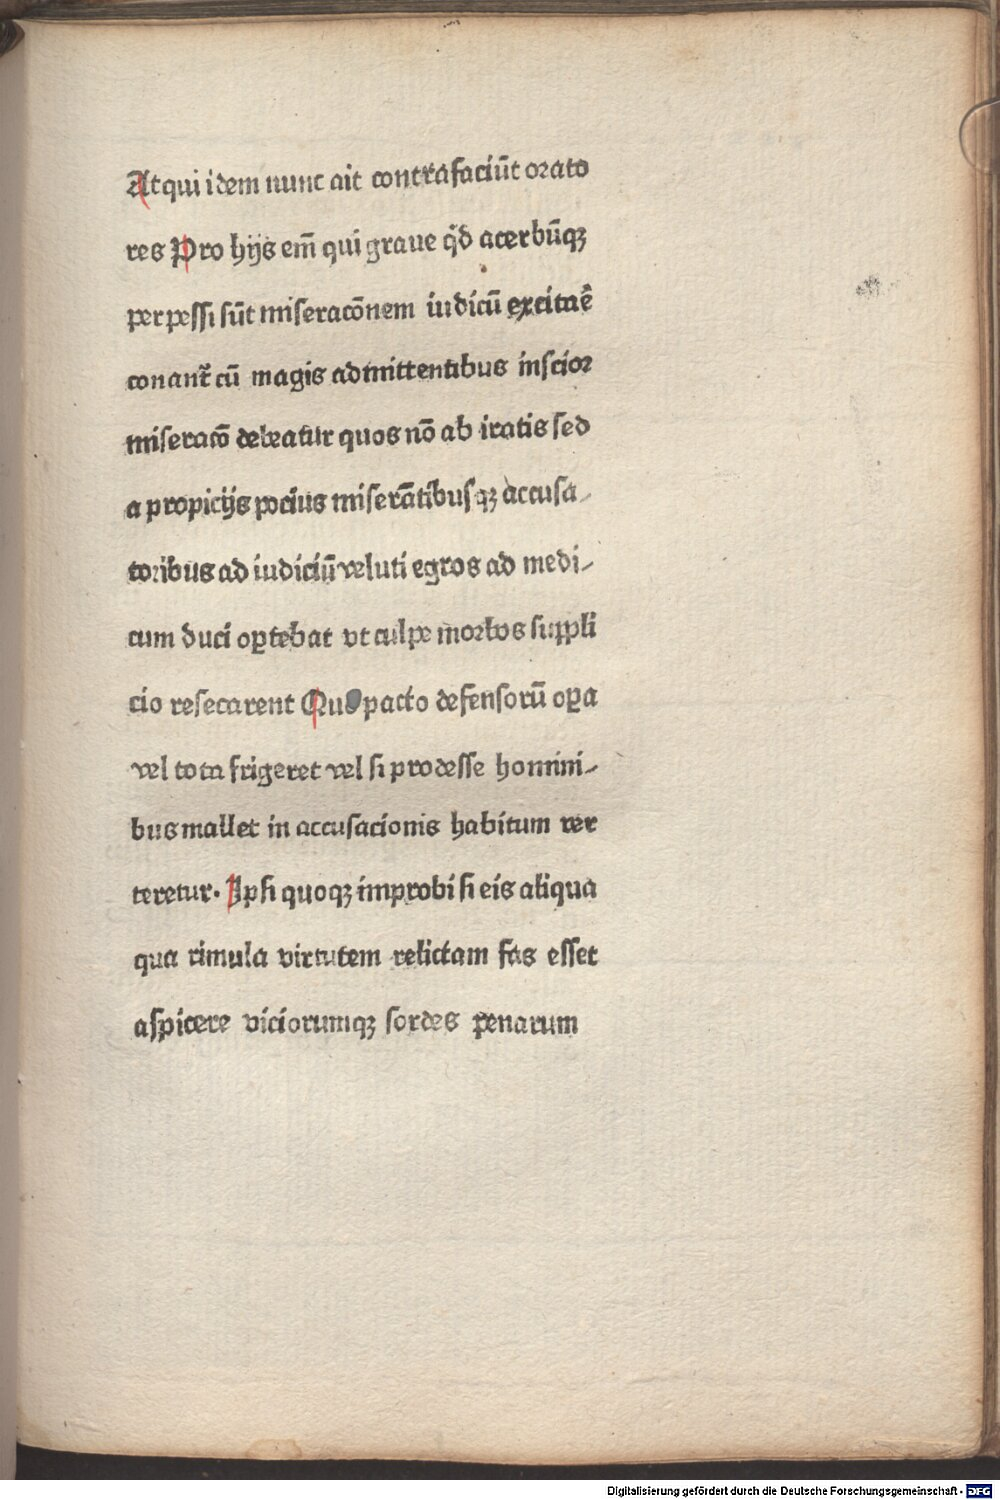 Atqui idem nunc ait contra faciūt orato
res Pro hijs em̄ qui graue qd̓ acerbūqꝫ
perpessi sūt miseracōnem iudicū excitaꝛē
conant᷑ cū magis admittentibus inscior
miseracō debeatur quos nō ab iratis sed
a propicijs pocius miserātibusqꝫ accusa-
toribus ad iudiciū veluti egros ad medi-
cum duci oꝑtebat vt culpe morbos suppli
cio resecarent Quo pacto defensorū oꝑa
vel tota frigeret vel si prodesse homini-
bus mallet in accusacionis habitum ver
teretur. Ipsi quoqꝫ improbi si eis aliqua
qua rimula virtutem relictam fas esset
aspicere viciorumqꝫ sordes penarum
Digitalisierung gefördert durch die Deutsche Forschungsgemeinschaft - DFG